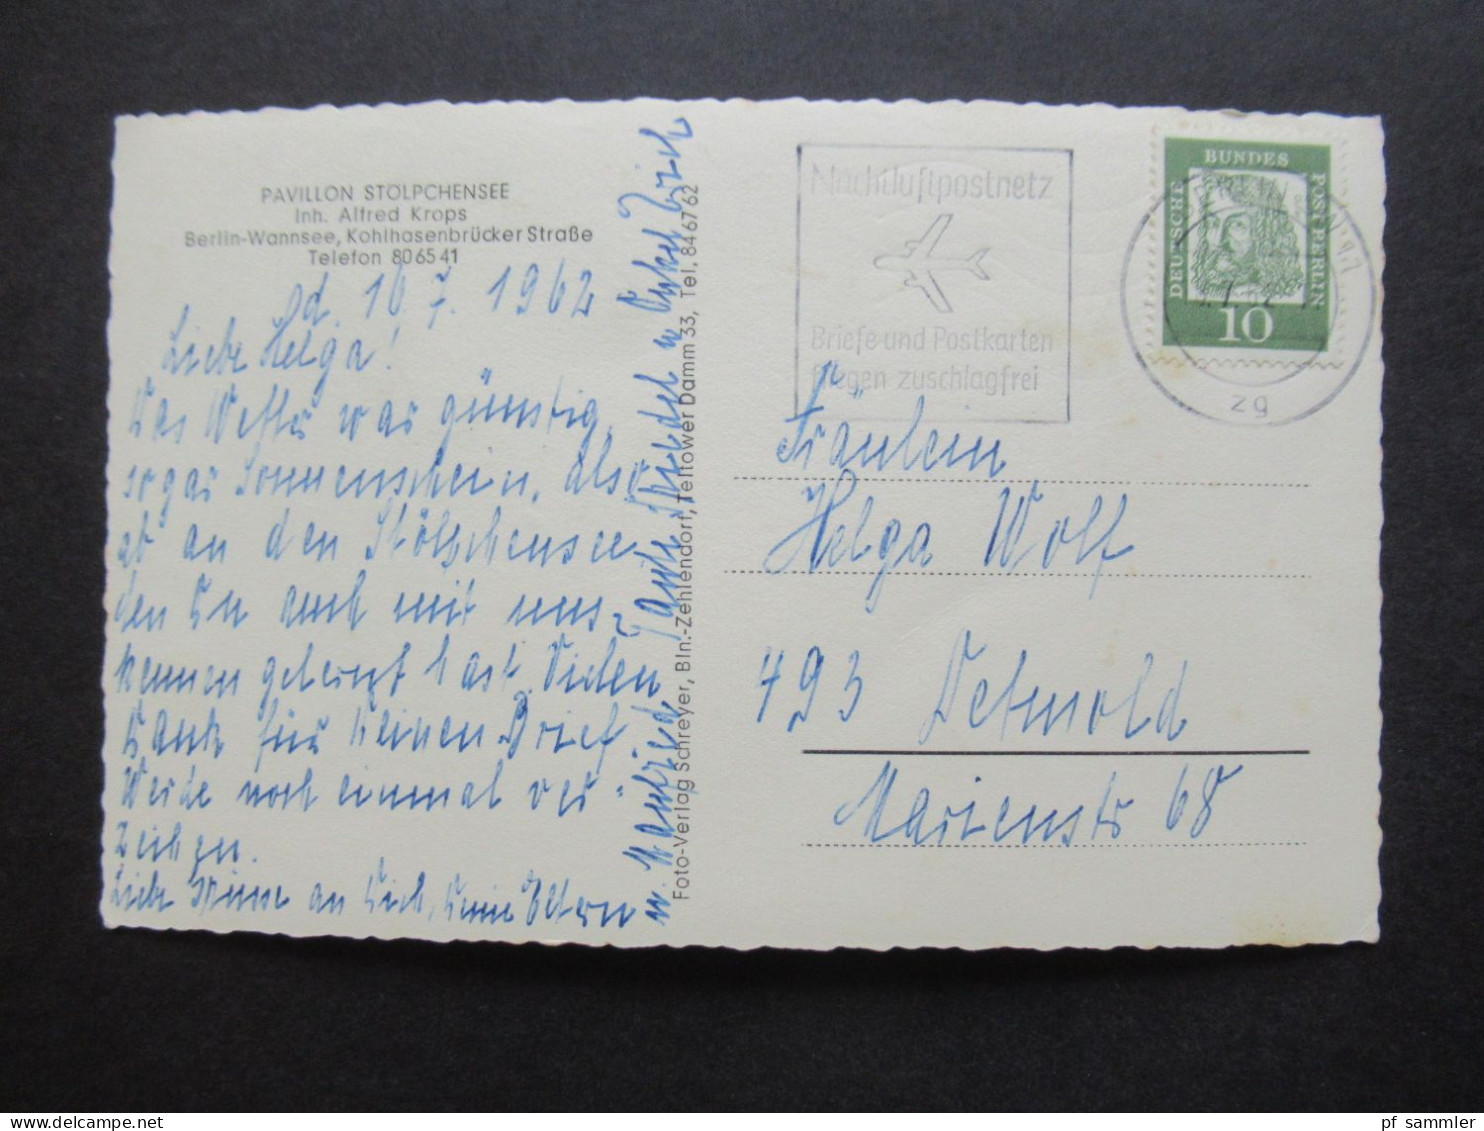 PAVILLON STOLPCHENSEE
Inh. Alfred Krops
Berlin-Wannsee, Kohlhasenbrücker Straße
Telefon 80 65 41
d. 10. 7. 1962
Liebe Helga!
Das Wetter war günstig,
sogar Sonnenschein, also
ab an den Stölpchensee
den Du auch mit uns
kennen gelernt hast. Vielen
Dank für Deinen Brief
Werde noch einmal ver-
Liebe Grüsse an Dich, Deine Eltern
u. Manfred Tante Friedel u. Onkel Erich
Foto-Verlag Schreyer, Bln.-Zehlendorf, Teltower Damm 33, Tel. 84 67 62
Nachtluftpostnetz
Briefe und Postkarten
fliegen zuschlagfrei
DEUSCHE BUNDES POST BERLIN
10
zg
Fräulein
Helga Wolf
493 Detmold
Marienstr 68
pf sammler